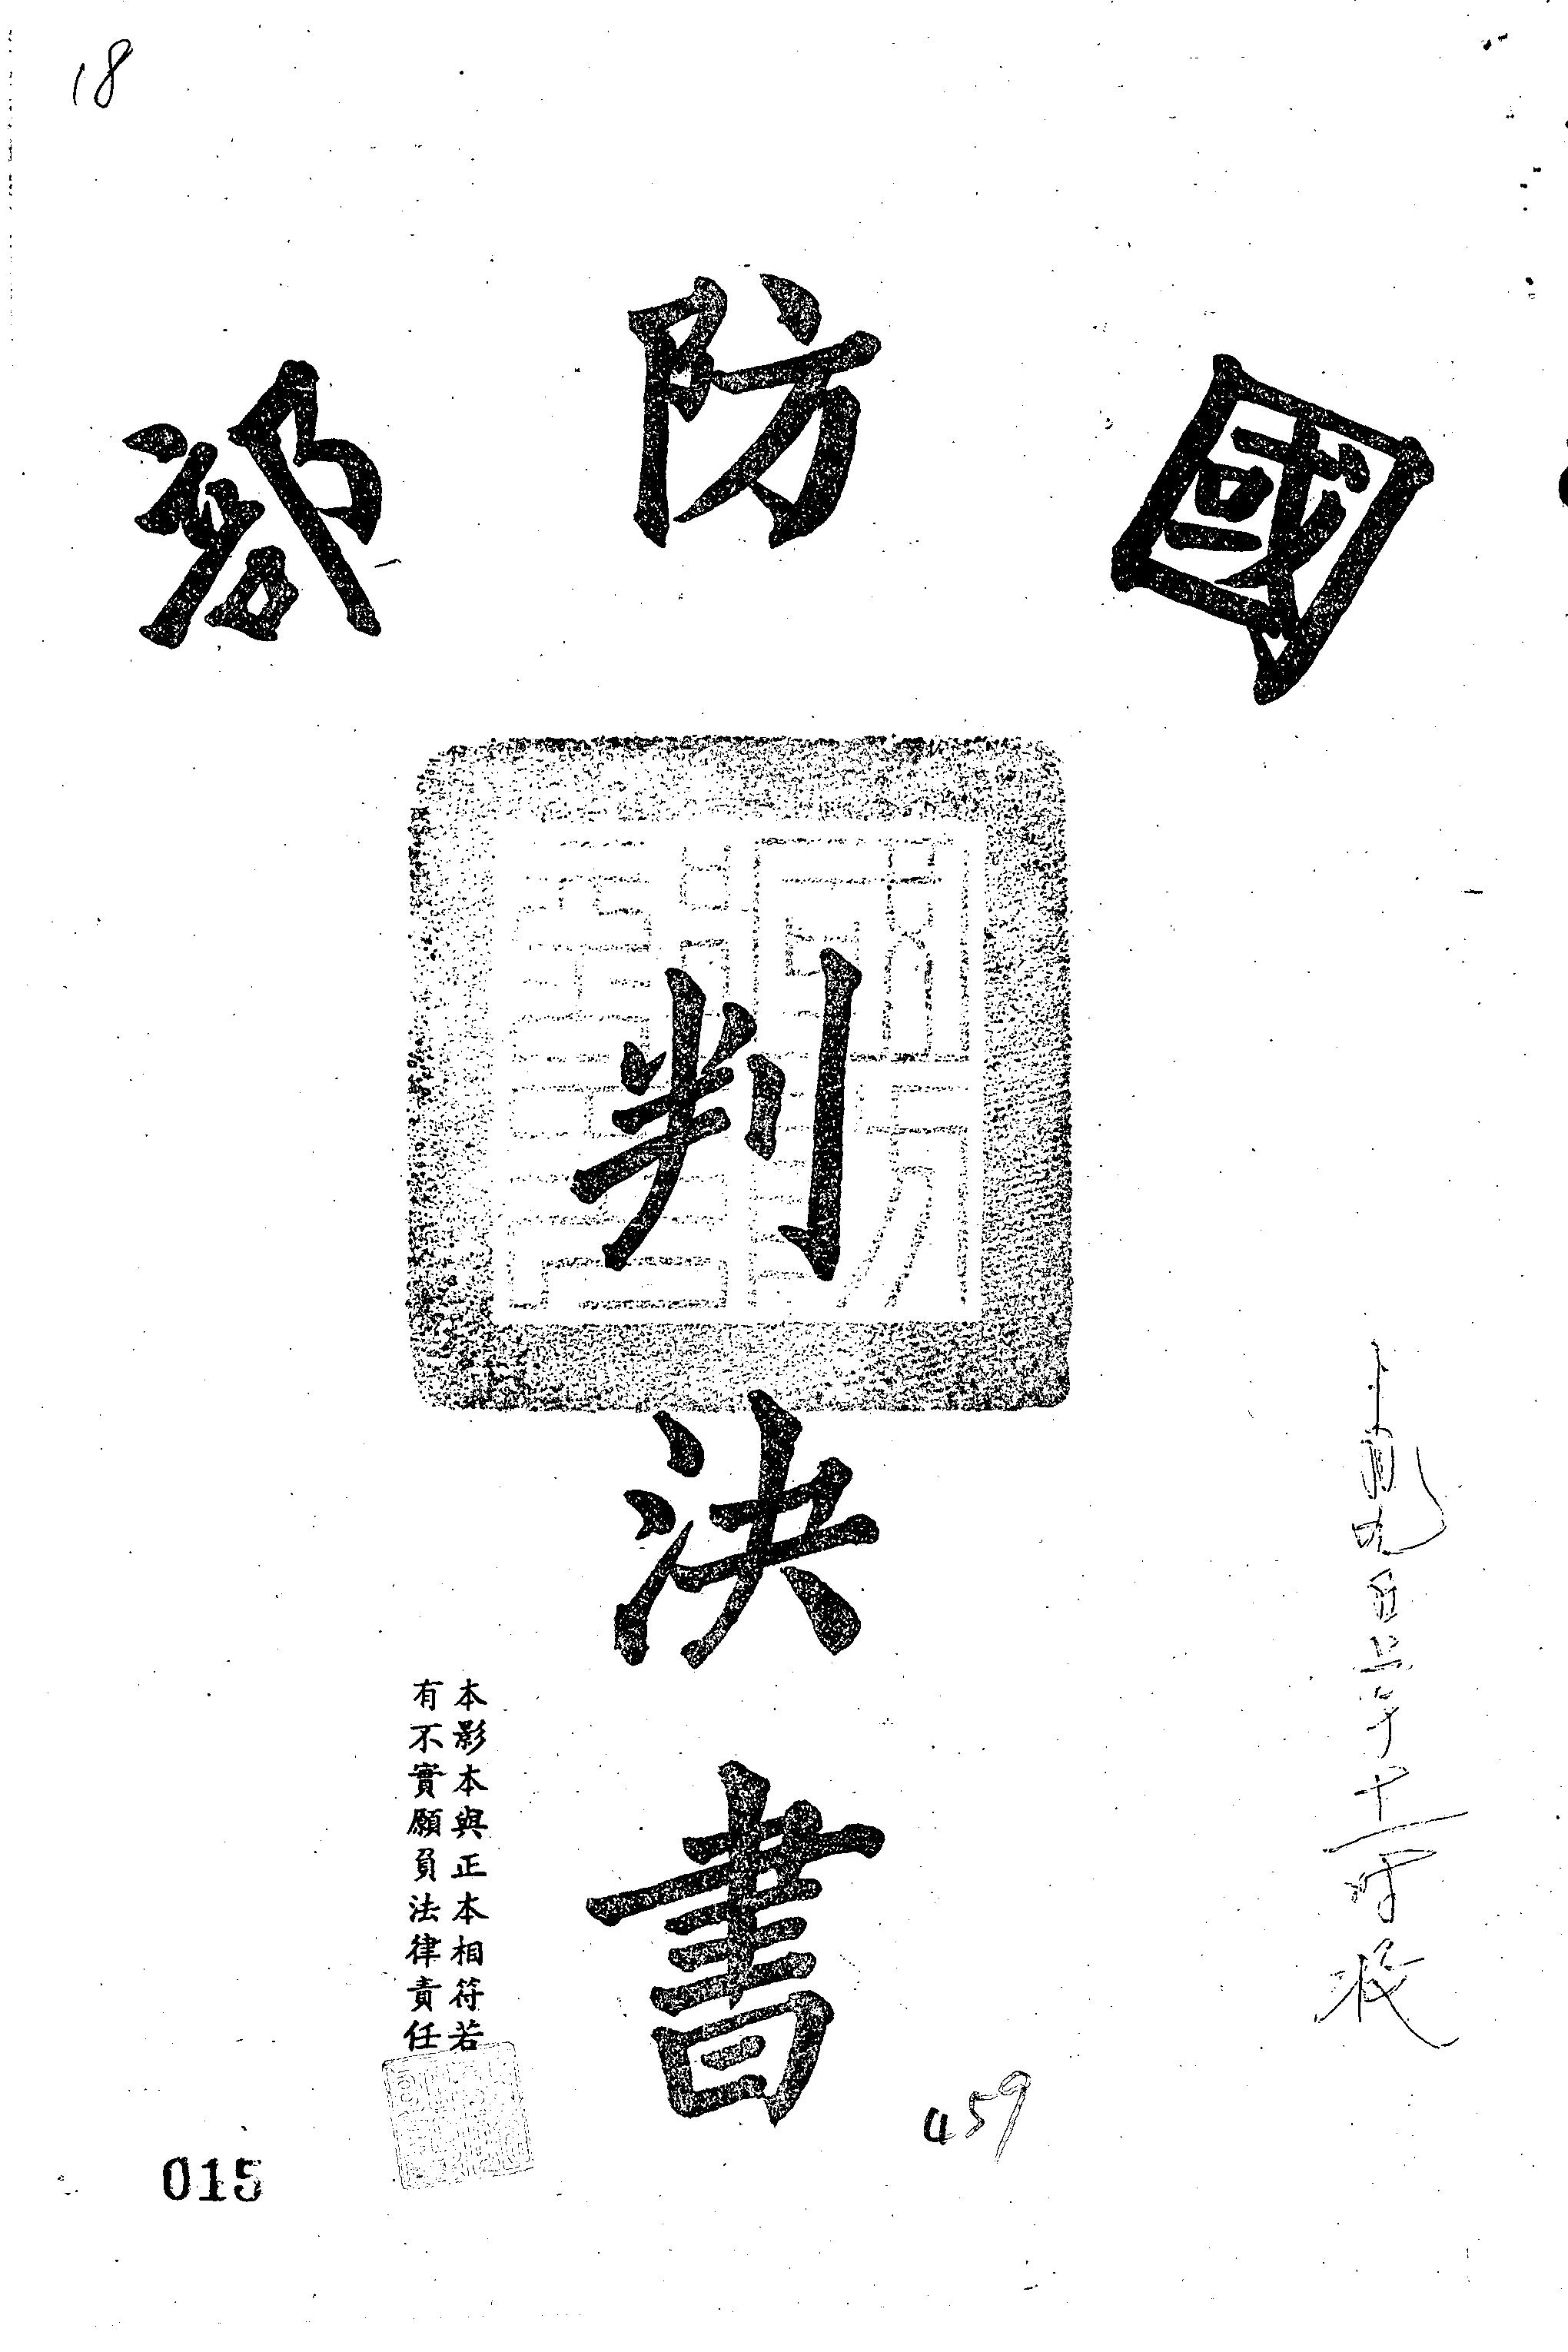 18
國防部
判決書
本影本與正本相符若
有不實願負法律責任
459
015